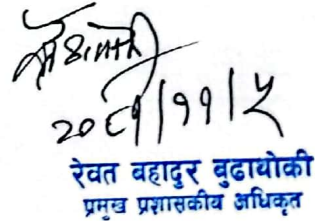 २०८१/११/५
रेवत बहादुर बुढाथोकी
प्रमुख प्रशासकीय अधिकृत